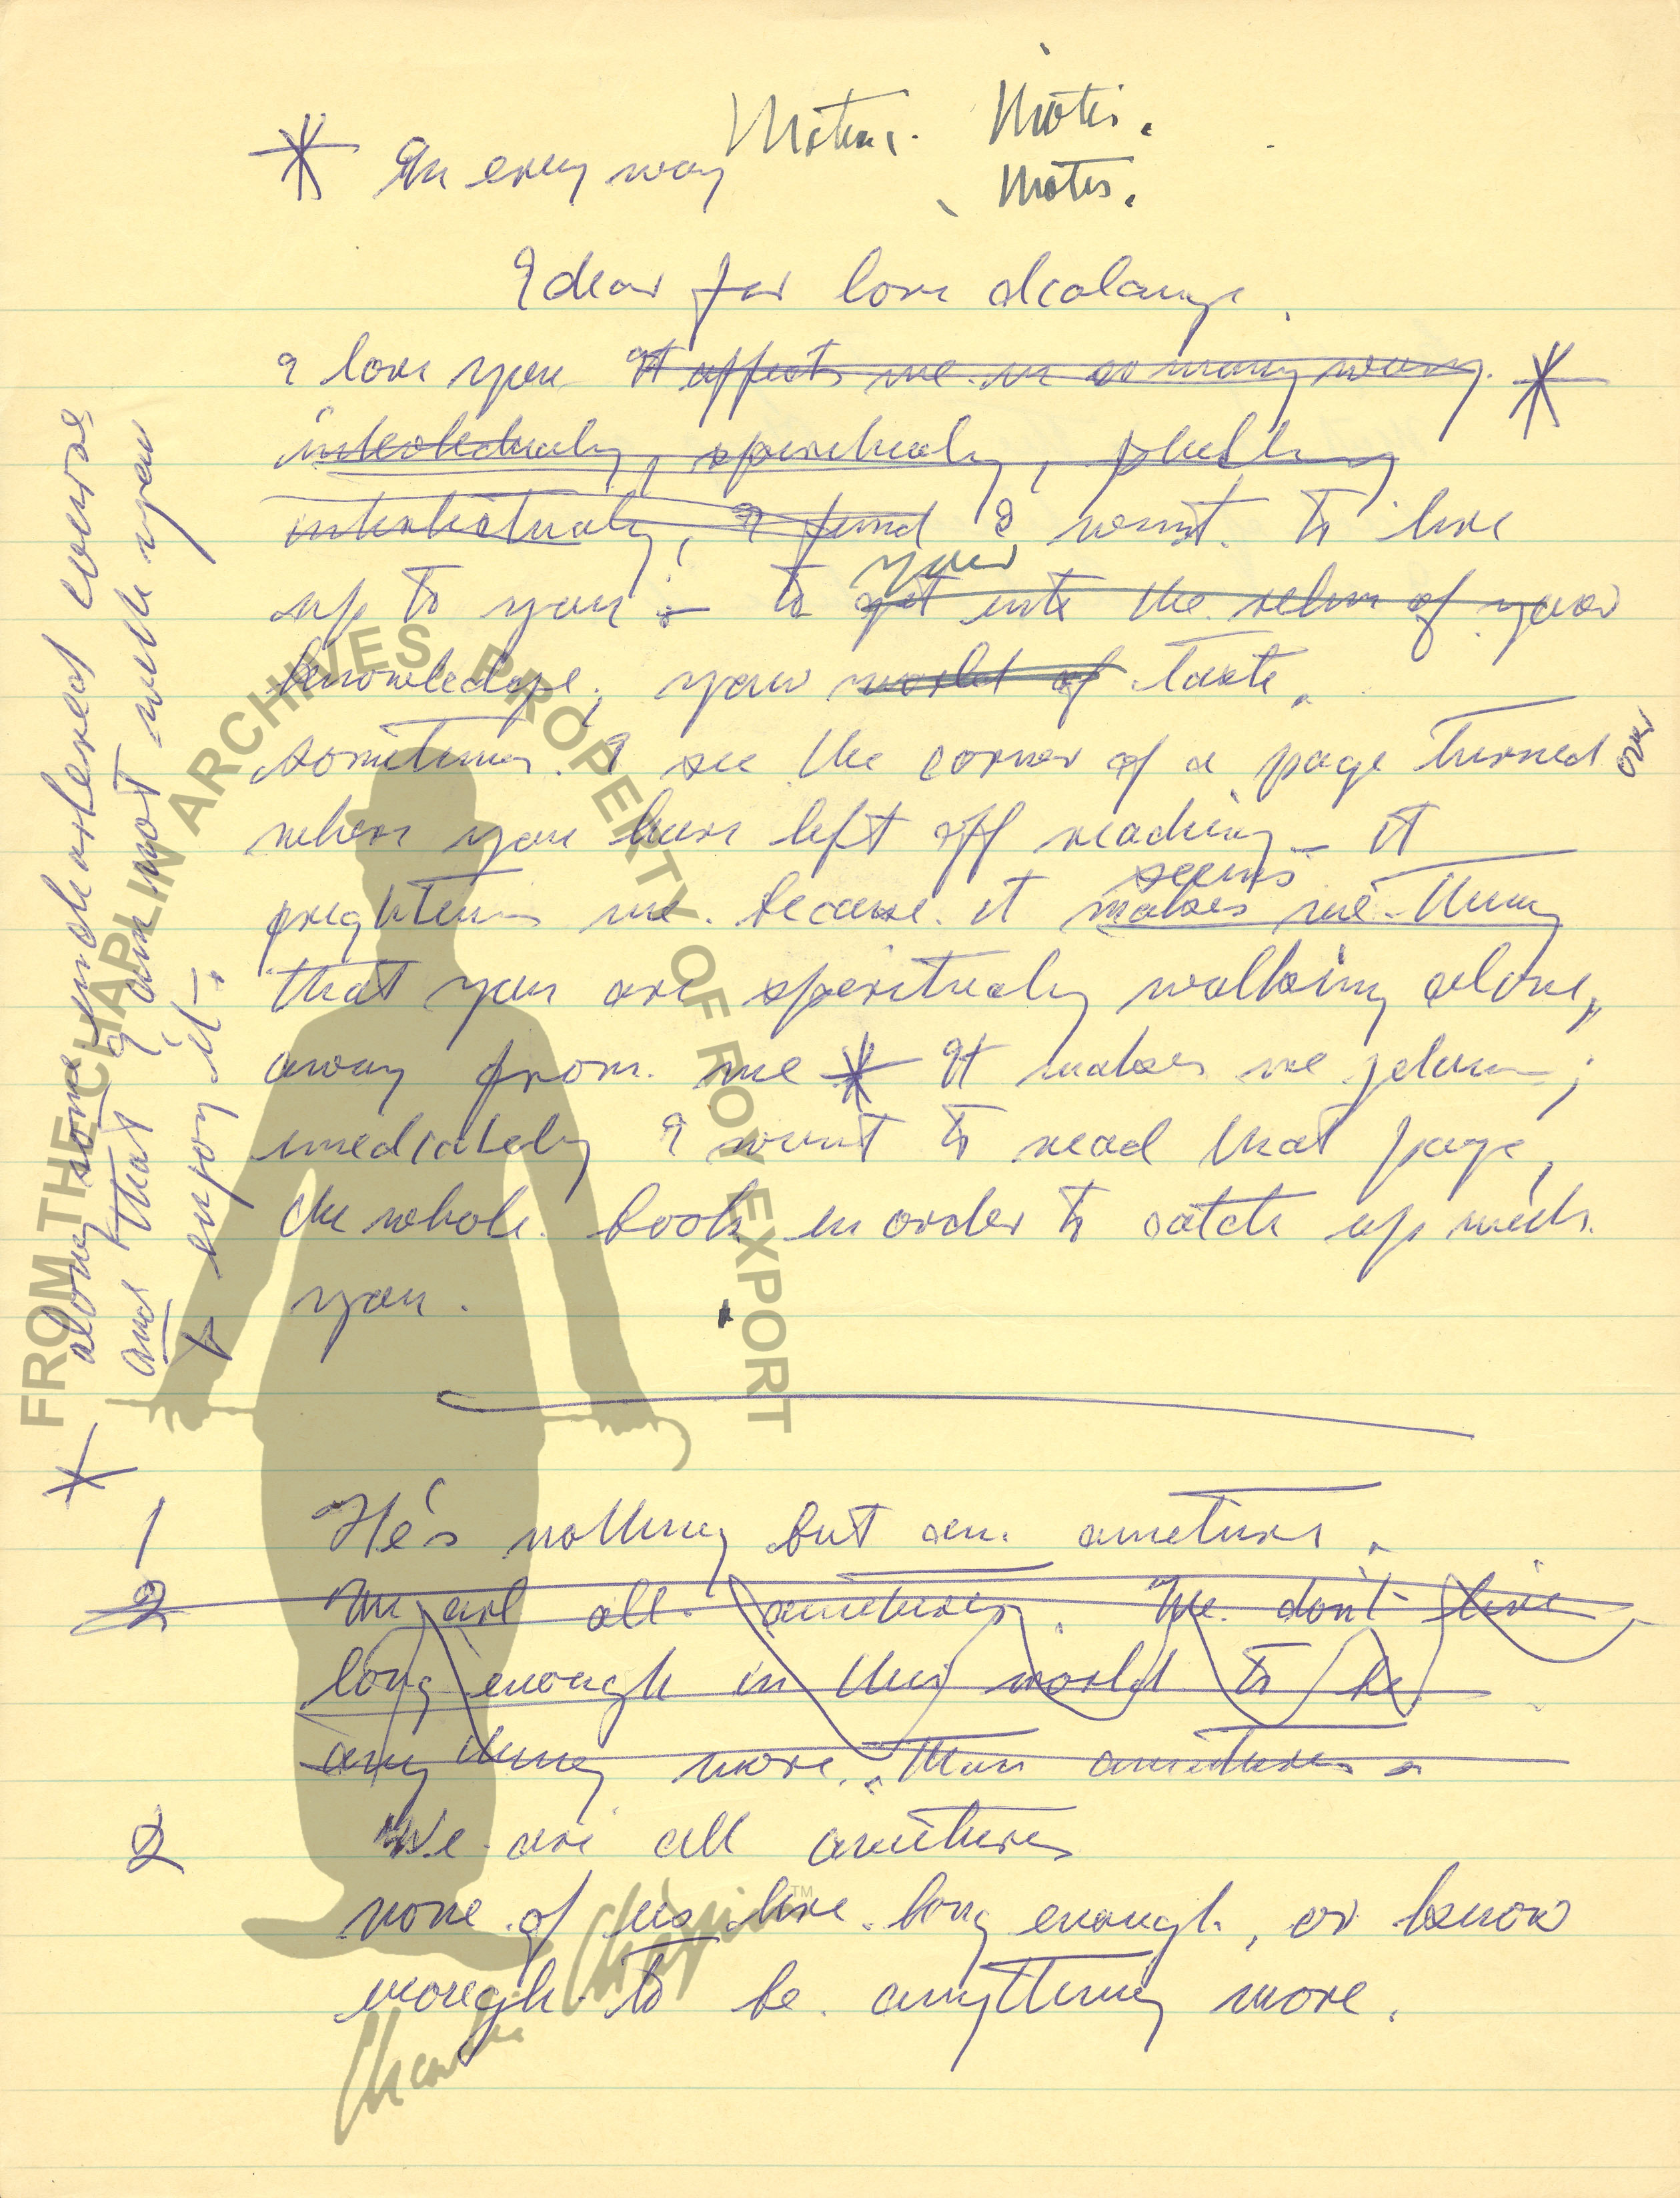 Notes. Notes.
* In every way
Notes.
Idear for love dialauge.
I love you It affects me in so many ways. *
intelectualy, spiritualy,
intelectualy, I find I want to live
up to you - to get into the relm of your
your
knowledge, your world of taste.
sometimes I see the corner of a page turned over
where you have left off reading - it
frightens me because it makes me think
seems
that you are speritualy walking alone,
away from me * It makes me jelous;
imediately I want to read that page,
the whole book in order to catch up with
you.
* along some unchartered course
and that I am not with you
to enjoy it -.
1 He's nothing but an ameture.
2 We are all ametures. We don't live
long enough in this world to be
any thing more than ametures.
2 We are all ametures
none of us live long enough, or know
enough to be anything more.
FROM THE CHAPLIN ARCHIVES PROPERTY OF ROY EXPORT
Charlie Chaplin ™